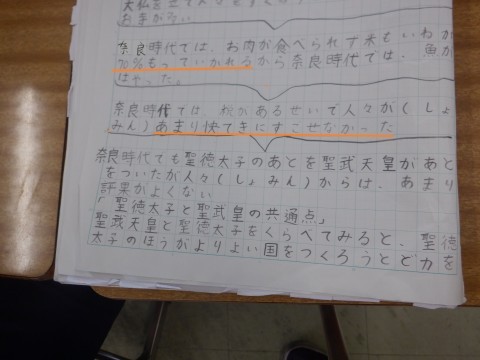 大仏を立て人々もすくわ
おきがろい
奈良時代ては、お肉が食べられず米もいねか
70%もっていかれるから奈良時代では、魚か
はやった。
奈良時代ては、税があるせいで人々が(しょ
みん)あまり快てきにすこせなかった
奈良時代ても聖徳太子のあとを聖武天皇があと
をついたが人々(しょみん)からは、あまり
評果がよくない
「聖徳太子と聖武皇の共通点」
聖武天皇と聖徳太子をくらべてみると、聖徳
太子のほうがよりよい国をつくろうとど力を